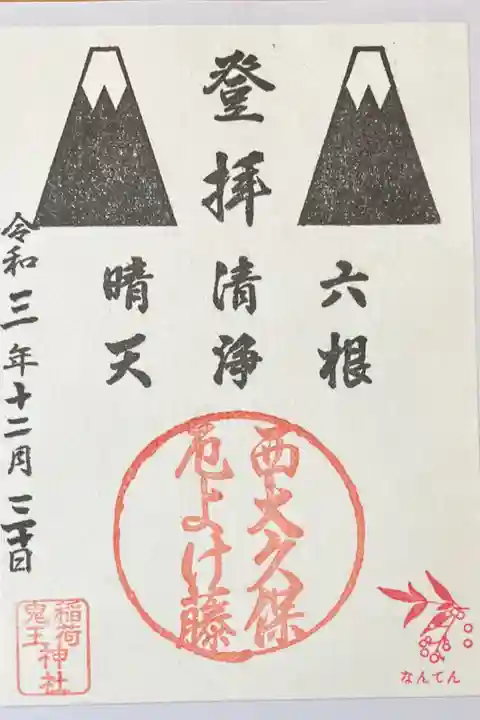 登拝
六根
清浄
晴天
令和三年十二月三十日
西大久保
厄よけ藤
稲荷
鬼王
神社
なんてん